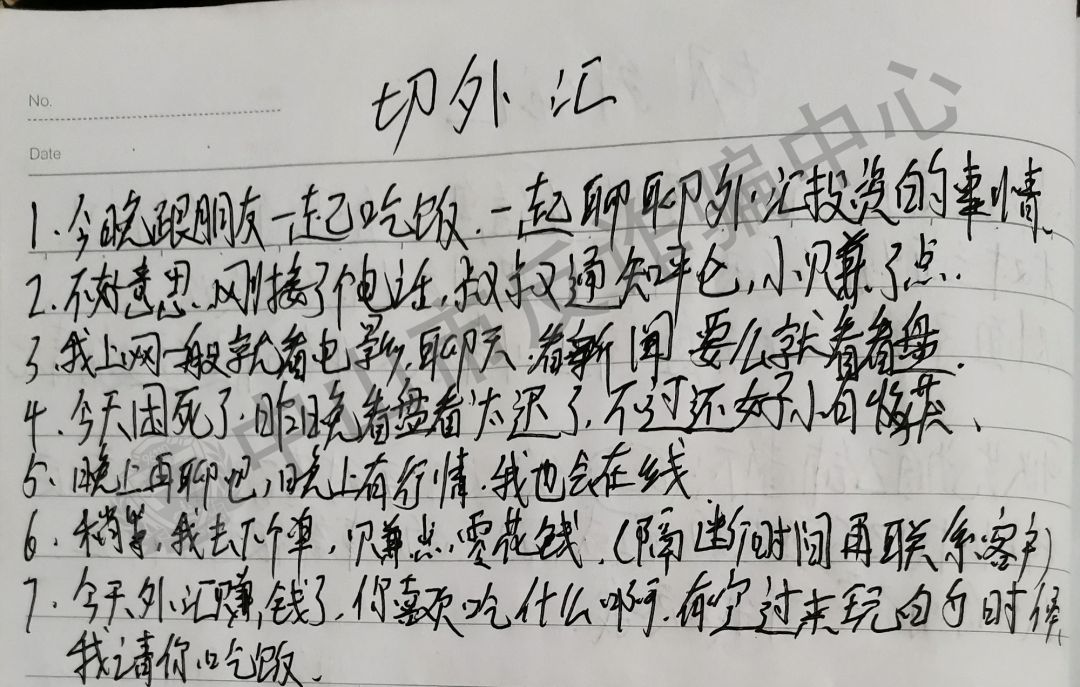 No.
切外汇
Date
1、今晚跟朋友一起吃饭.一起聊聊外汇投资的事情、
2.不好意思.刚接了个电话,叔叔通知平仓,小赚了点.
3.我上网一般就看电影,聊天.看新闻 要么就看看盘.
4.今天困死了.昨晚看盘看太迟了,不过还好小有收获、
5、晚上再聊吧,晚上有行情.我也会在线
6、稍等,我去下个单,赚点零花钱.(隔断时间再联系客户)
7、今天外汇赚钱了,你喜欢吃什么啊.有空过来玩的时候
我请你吃饭.
中山市反诈骗中心